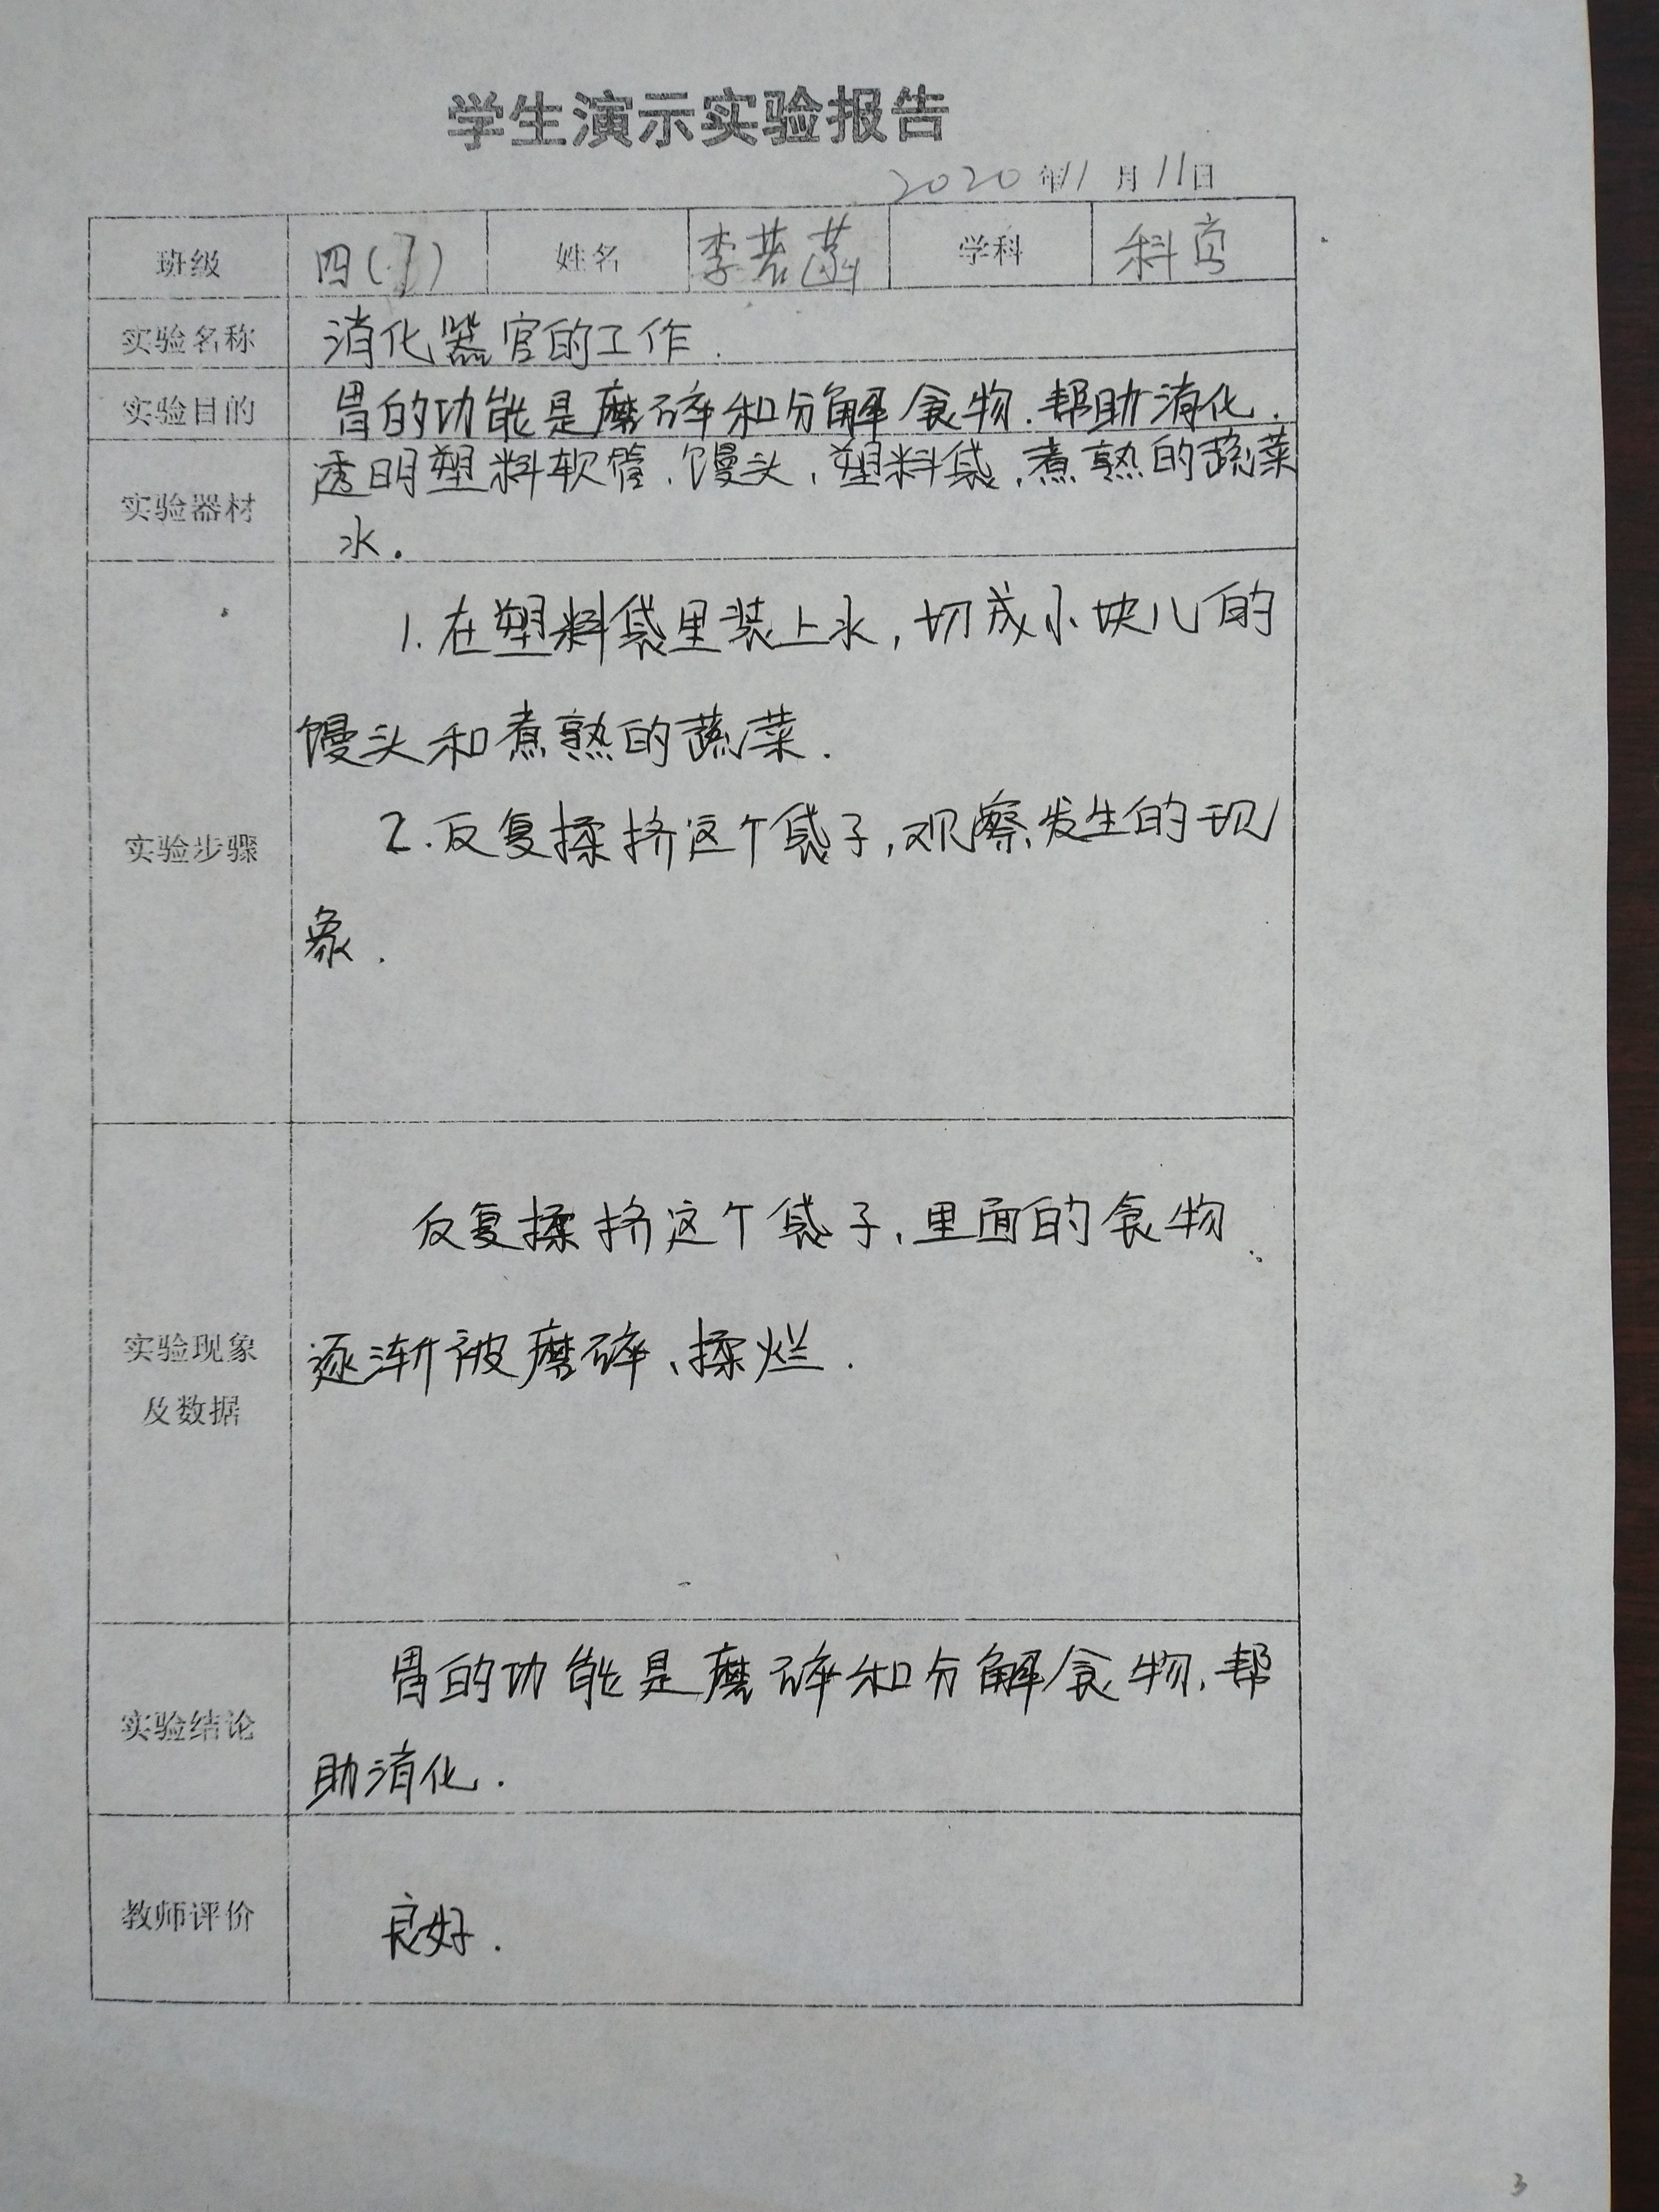 学生演示实验报告
2020年11月11日
班级 四(1) 姓名 李若菡 学科 科学
实验名称 消化器官的工作.
实验目的 胃的功能是磨碎和分解食物.帮助消化.
实验器材 透明塑料软管、馒头,塑料袋,煮熟的蔬菜
水.
实验步骤
1.在塑料袋里装上水,切成小块儿的
馒头和煮熟的蔬菜.
2.反复揉挤这个袋子,观察发生的现
象.
实验现象
及数据
反复揉挤这个袋子,里面的食物
逐渐被磨碎、揉烂.
实验结论
胃的功能是磨碎和分解食物,帮
助消化.
教师评价 良好.
3